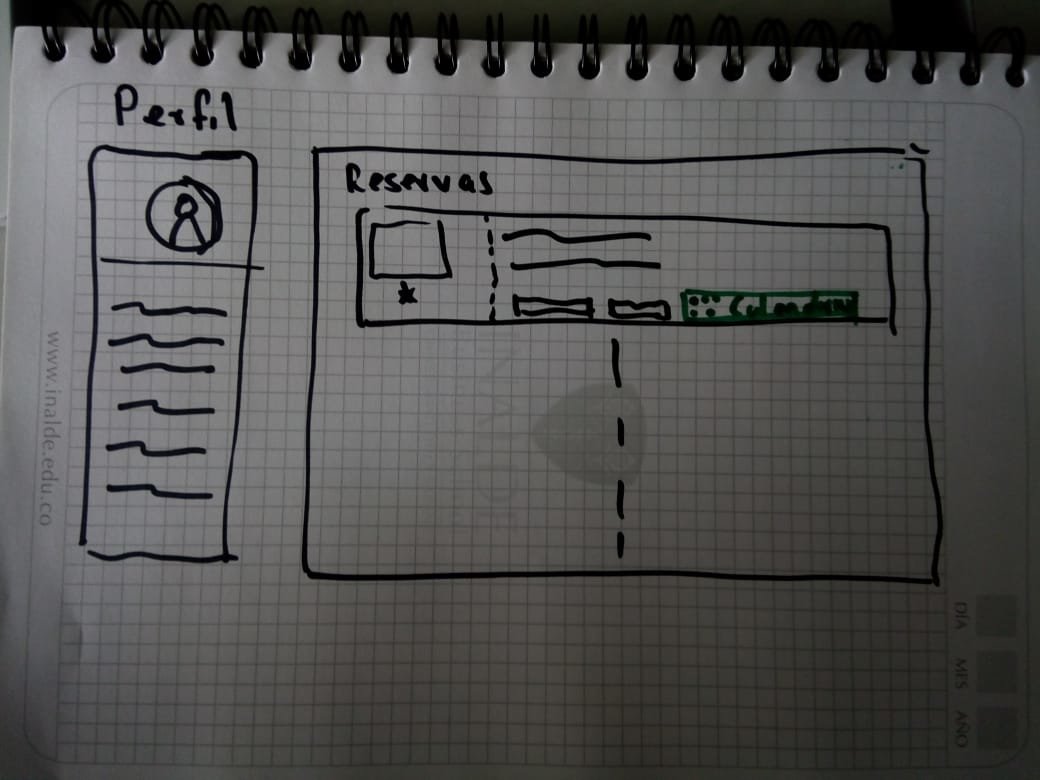 Perfil
Reservas
Calendario
www.inalde.edu.co
DÍA
MES
AÑO